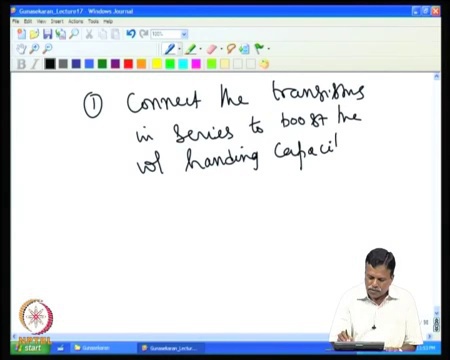 Gunasekaran_Lecture17 - Windows Journal
File Edit View Insert Actions Tools Help
100%
B I
① Connect the transistors
in series to boost the
vol handing capaci
NPTEL
start
Gunasekaran
Gunasekaran_Lectu...